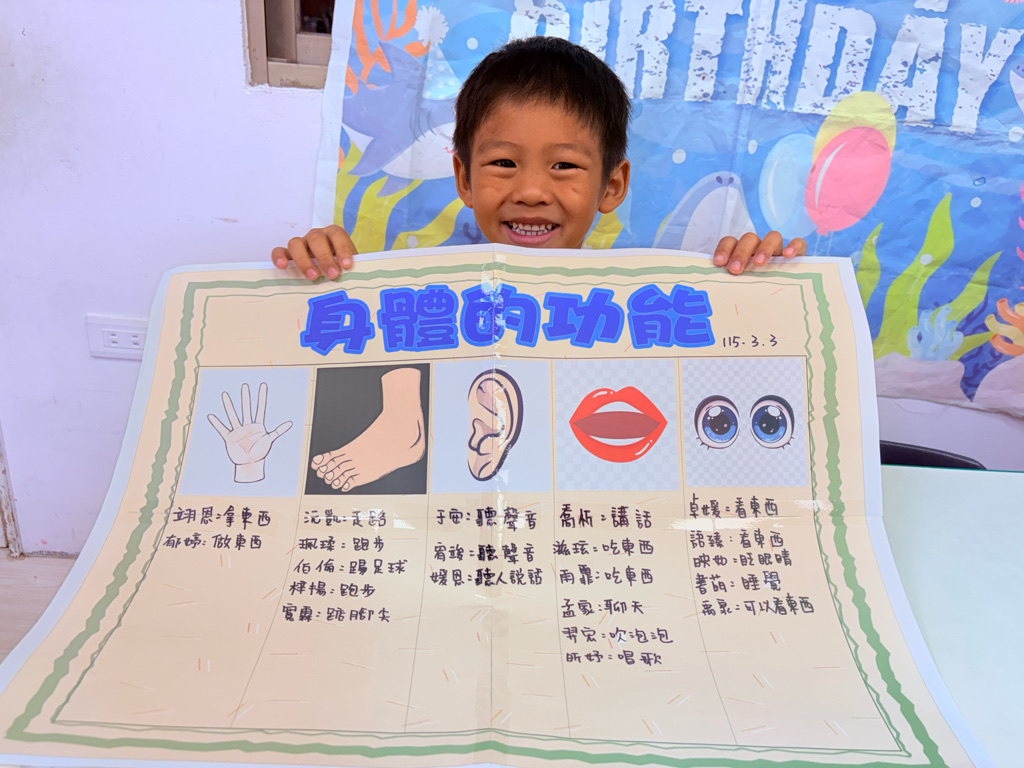 BIRTHDAY
身體的功能
115.3.3
翊恩:拿東西
郁婷:做東西
沅凱:走路
珮瑈:跑步
伯倫:踢足球
梓揚:跑步
寬霖:踮腳尖
于安:聽聲音
宥竣:聽聲音
媛恩:聽人說話
喬析:講話
滋玹:吃東西
雨霏:吃東西
孟家:聊天
羿宏:吹泡泡
昕妤:唱歌
卓媛:看東西
語臻:看東西
映妢:眨眼睛
書茹:睡覺
禹丞:可以看東西